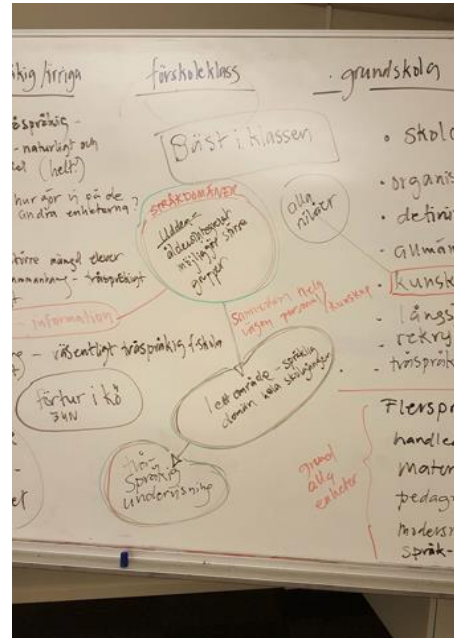 förskoleklass
grundskola
Bäst i klassen
språkig -
- naturligt och
(helt?)
hur gör vi på de
andra enheterna?
större mängd elever
- tvåspråkigt
- information
- väsentligt tvåspråkig f-skola
förtur i kö
SPRÅKDOMÄNER
Udden =
åldersintegrerat
möjliggör större
grupper
alla
nivåer
Samordna hela
vägen personal / kunskap
1 ett område - språklig
domän hela skolgången
språkig
undervisning
grund
alla
enheter
• skol
• organis
• definit
• allmän
kunsk
- långs
- rekry
- tvåspråk
Flerspr
handled
mater
pedag
modersm
språk-